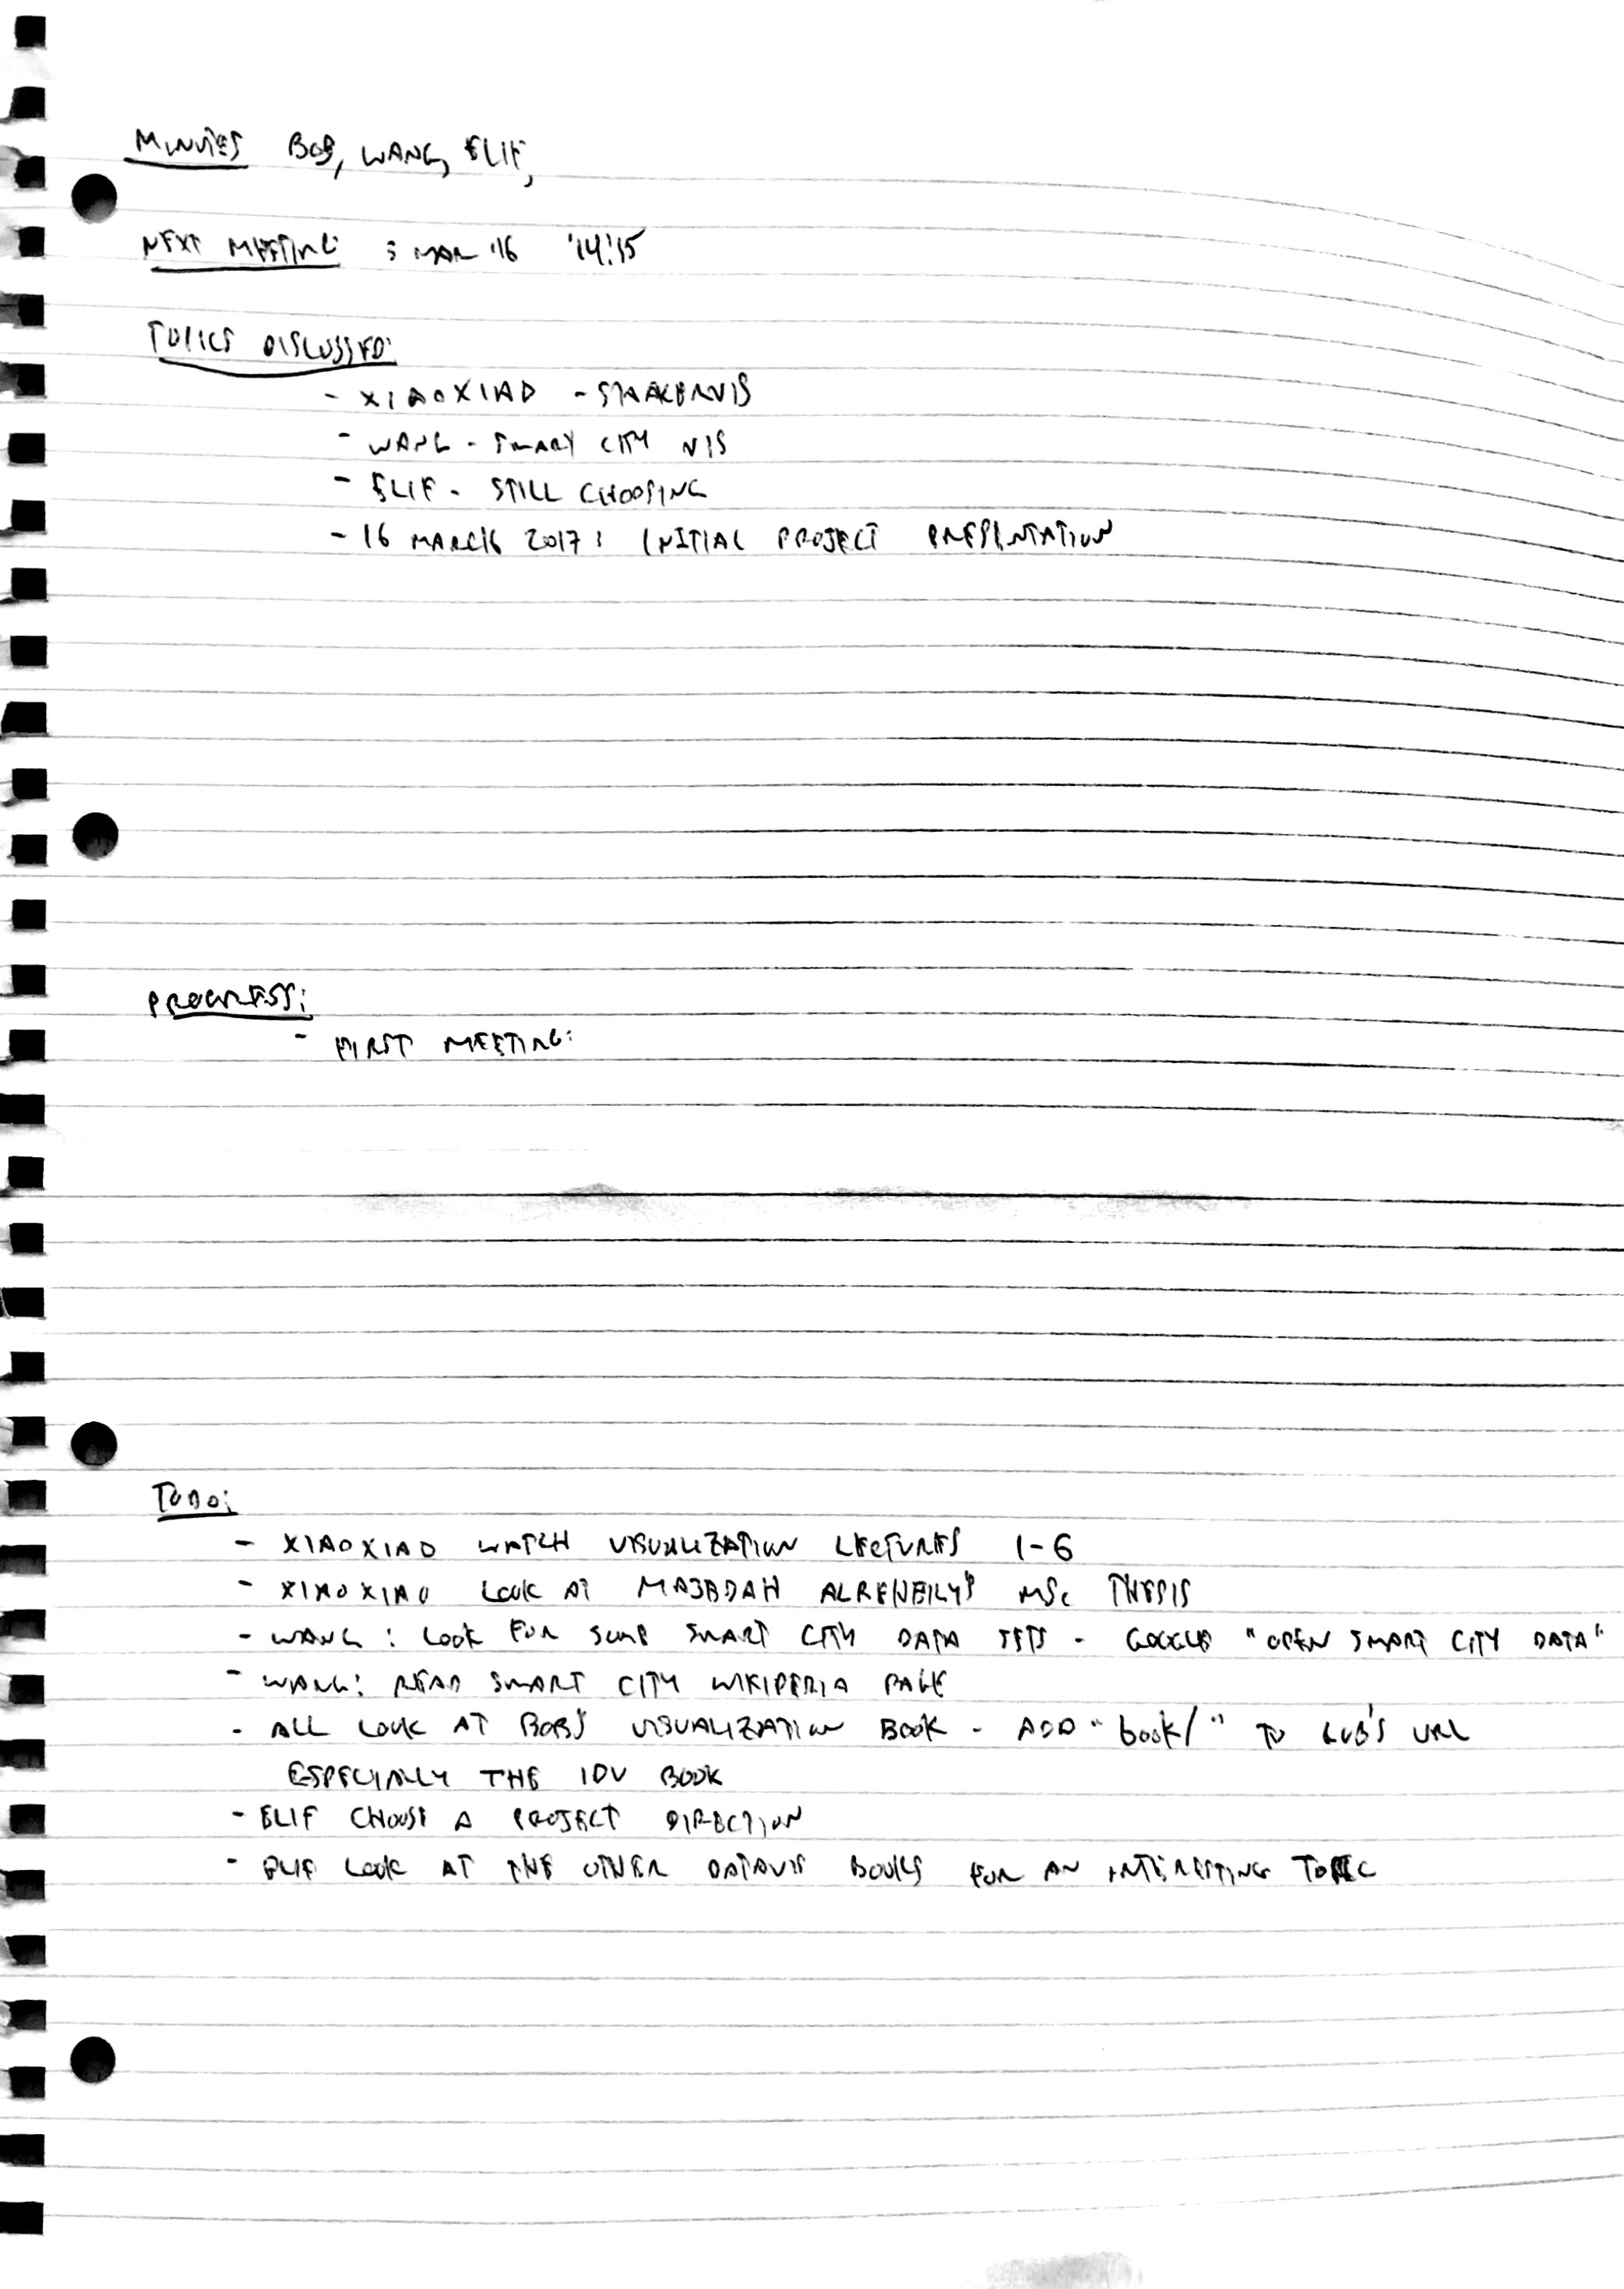 MINUTES BOB, WANG, ELIF,
NEXT MEETING: 3 MAR '16 '14:15
TOPICS DISCUSSED:
- XIAOXIAO -
- WANG - SMART CITY VIS
- ELIF - STILL CHOOSING
- 16 MARCH 2017: INITIAL PROJECT PRESENTATION
PROGRESS:
- FIRST MEETING:
TODO:
- XIAOXIAO WATCH VISUALIZATION LECTURES 1-6
- XIAOXIAO LOOK AT MSc THESIS
- WANG: LOOK FOR SOME SMART CITY DATA SETS - GOOGLE "OPEN SMART CITY DATA"
- WANG: READ SMART CITY WIKIPEDIA PAGE
- ALL LOOK AT BOB'S VISUALIZATION BOOK - ADD "book/" TO BOB'S URL
ESPECIALLY THE IDV BOOK
- ELIF CHOOSE A PROJECT DIRECTION
- ELIF LOOK AT THE OTHER DATAVIS BOOKS FOR AN INTERESTING TOPIC